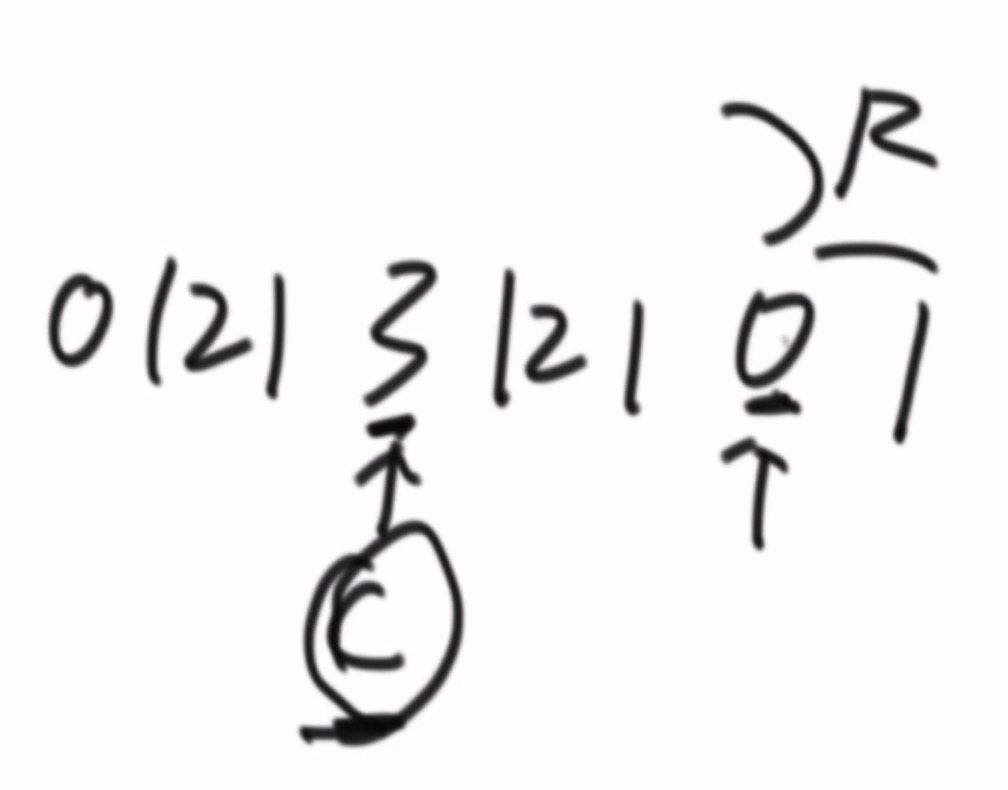 R
0121312101
C